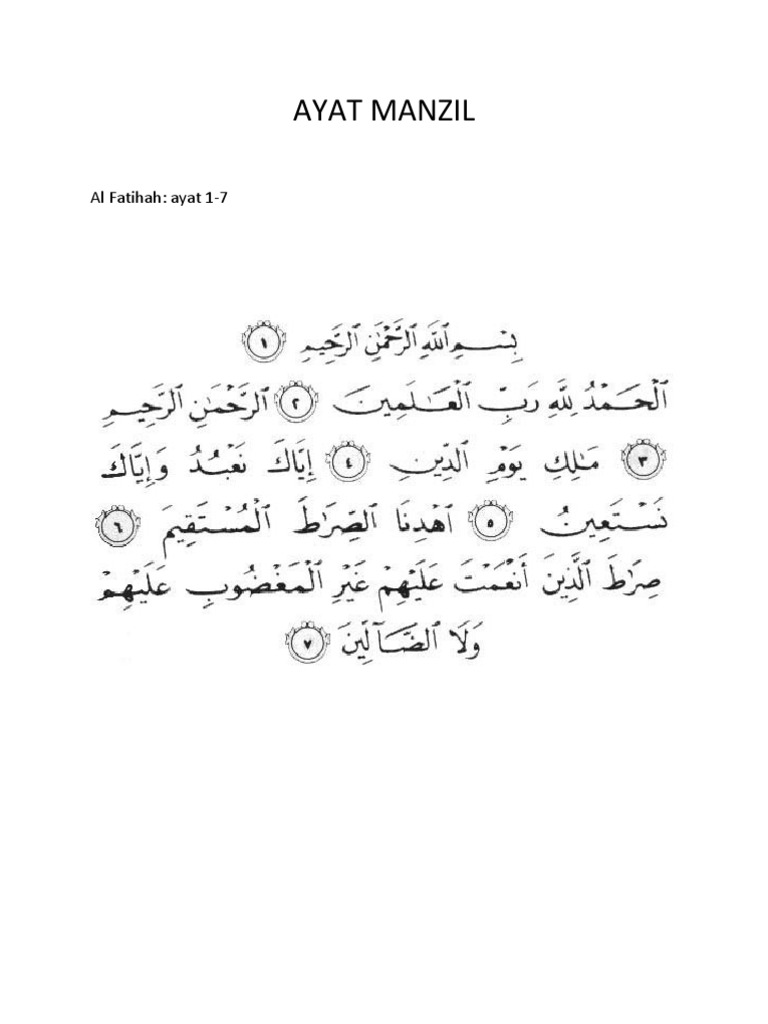 AYAT MANZIL
Al Fatihah: ayat 1-7
بِسْمِ اللَّهِ الرَّحْمَٰنِ الرَّحِيمِ ١
الْحَمْدُ لِلَّهِ رَبِّ الْعَالَمِينَ ٢ الرَّحْمَٰنِ الرَّحِيمِ
٣ مَالِكِ يَوْمِ الدِّينِ ٤ إِيَّاكَ نَعْبُدُ وَإِيَّاكَ
نَسْتَعِينُ ٥ اهْدِنَا الصِّرَاطَ الْمُسْتَقِيمَ ٦
صِرَاطَ الَّذِينَ أَنْعَمْتَ عَلَيْهِمْ غَيْرِ الْمَغْضُوبِ عَلَيْهِمْ
وَلَا الضَّآلِّينَ ٧